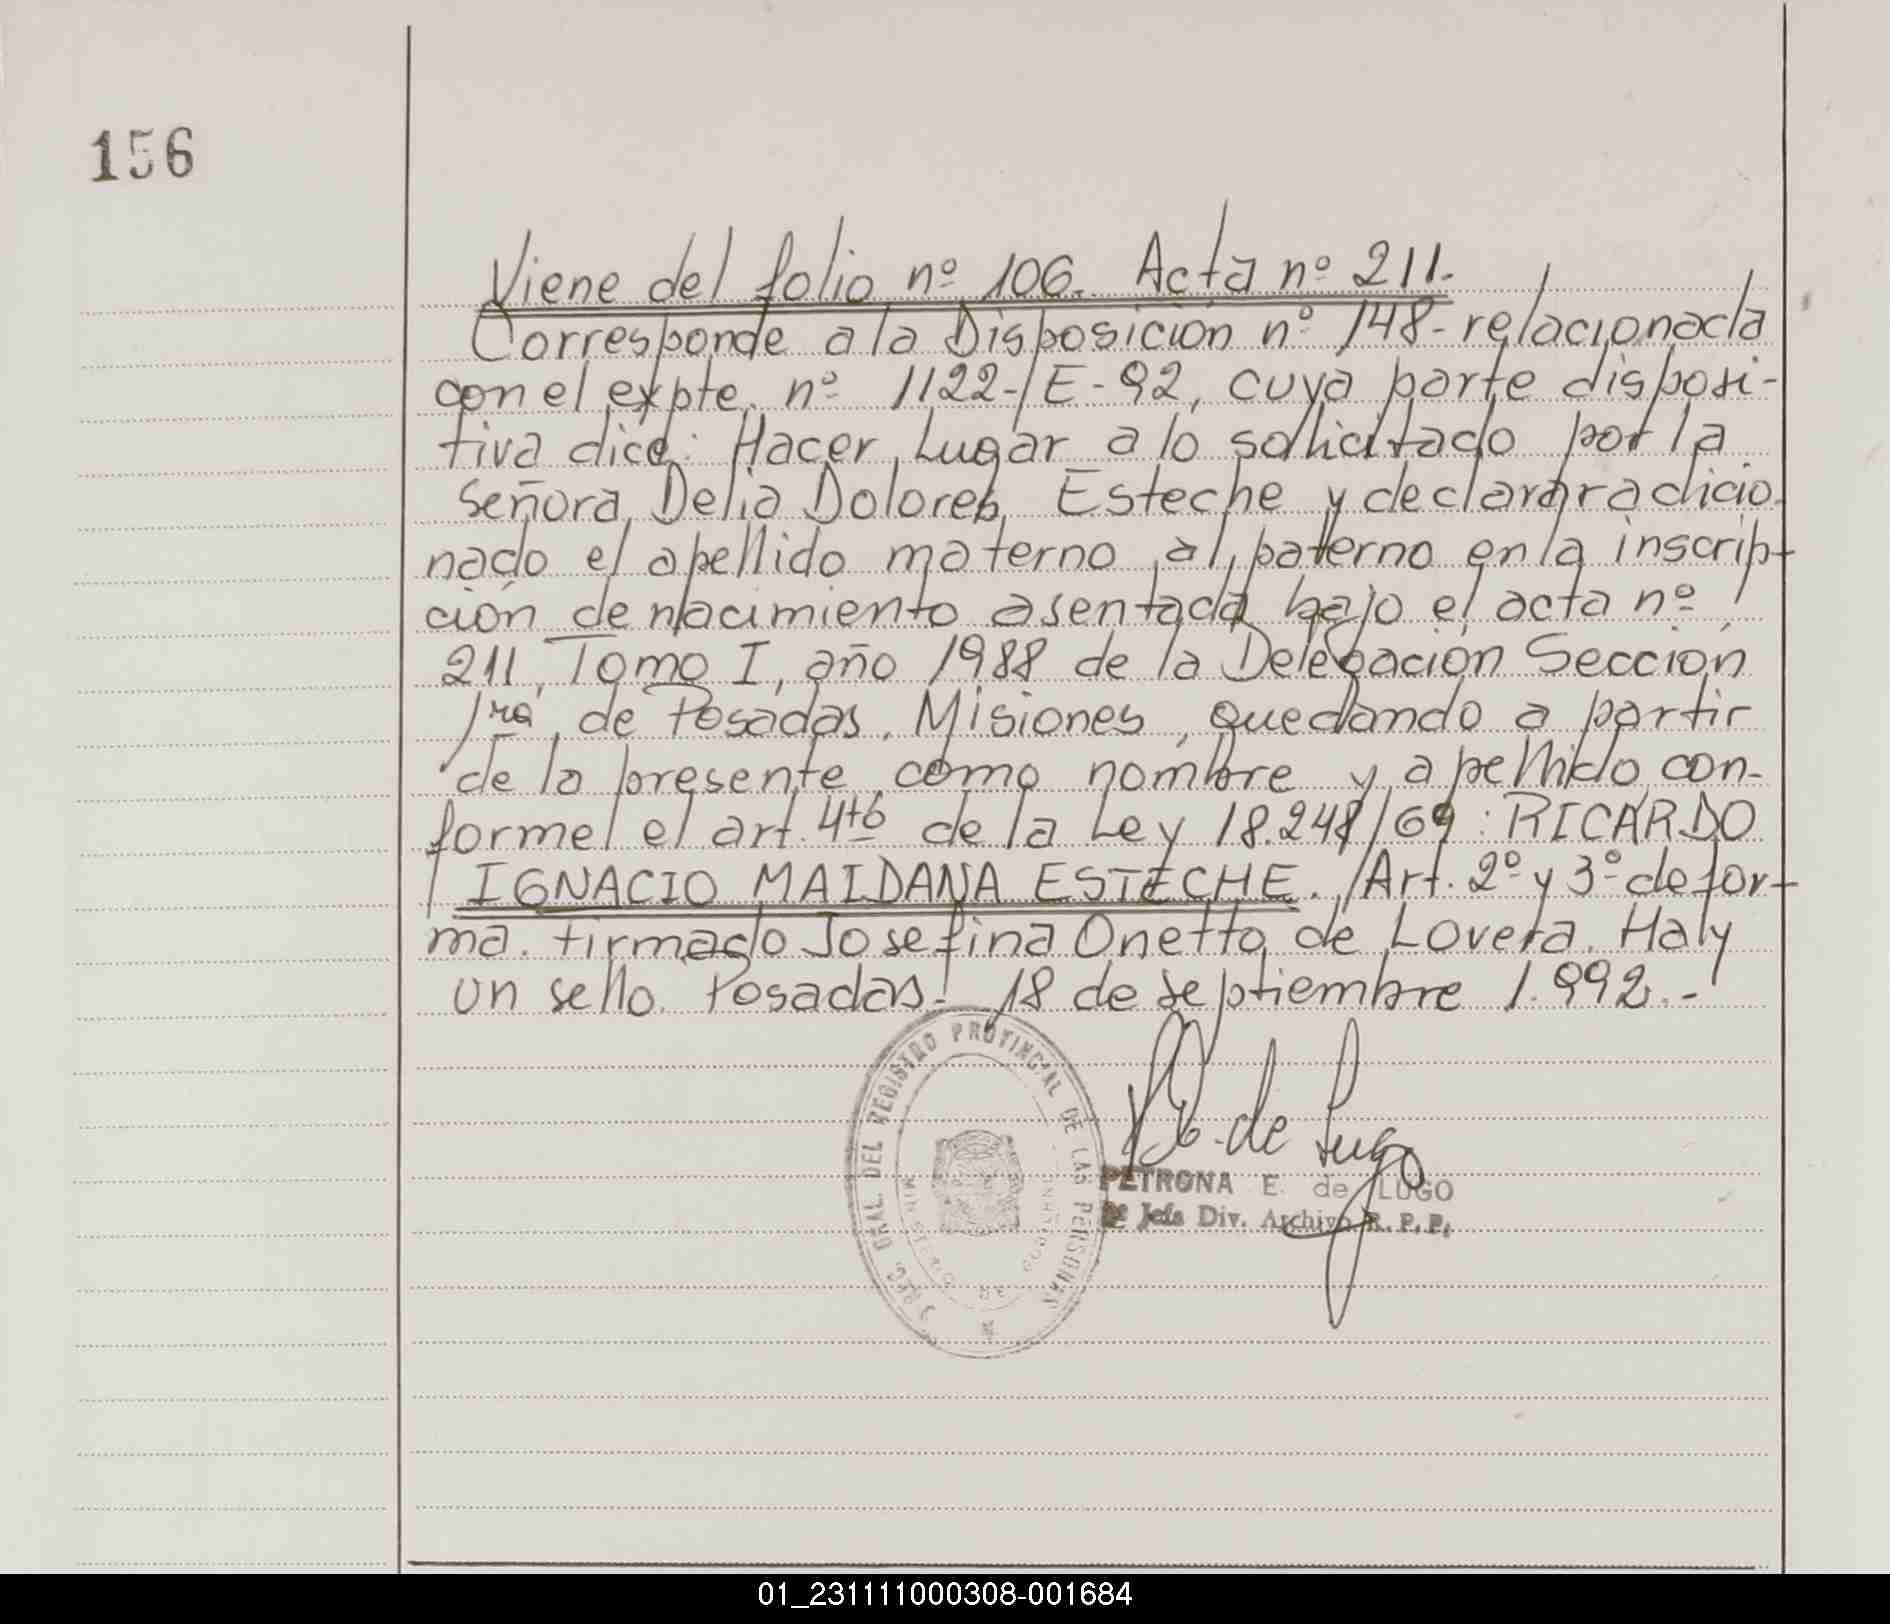 156
Viene del folio nº 106. Acta nº 211.
Corresponde a la Disposición nº 148- relacionada
con el expte. nº 1122-/E-92, cuya parte disposi-
tiva dice: Hacer Lugar a lo sollicitado por la
señora Delia Dolores Esteche y declarar adicio-
nado el apellido materno al paterno en la inscrip-
ción de nacimiento asentada bajo el acta nº
211, Tomo I, año 1988 de la Delegación Sección
1ra de Posadas, Misiones, quedando a partir
de la presente como nombre y apellido con-
forme el art. 4to de la Ley 18.248/69: RICARDO
IGNACIO MAIDANA ESTECHE. Art. 2º y 3º de for-
ma. firmado Josefina Onetto de Lovera. Hay
un sello. Posadas! 18 de septiembre 1.992.-
DIREC. GRAL. DEL REGISTRO PROVINCIAL DE LAS PERSONAS
MINISTERIO DE GOBIERNO
de Lugo
PETRONA E. de LUGO
2º Jefa Div. Archivo R. P. P.
01_231111000308-001684